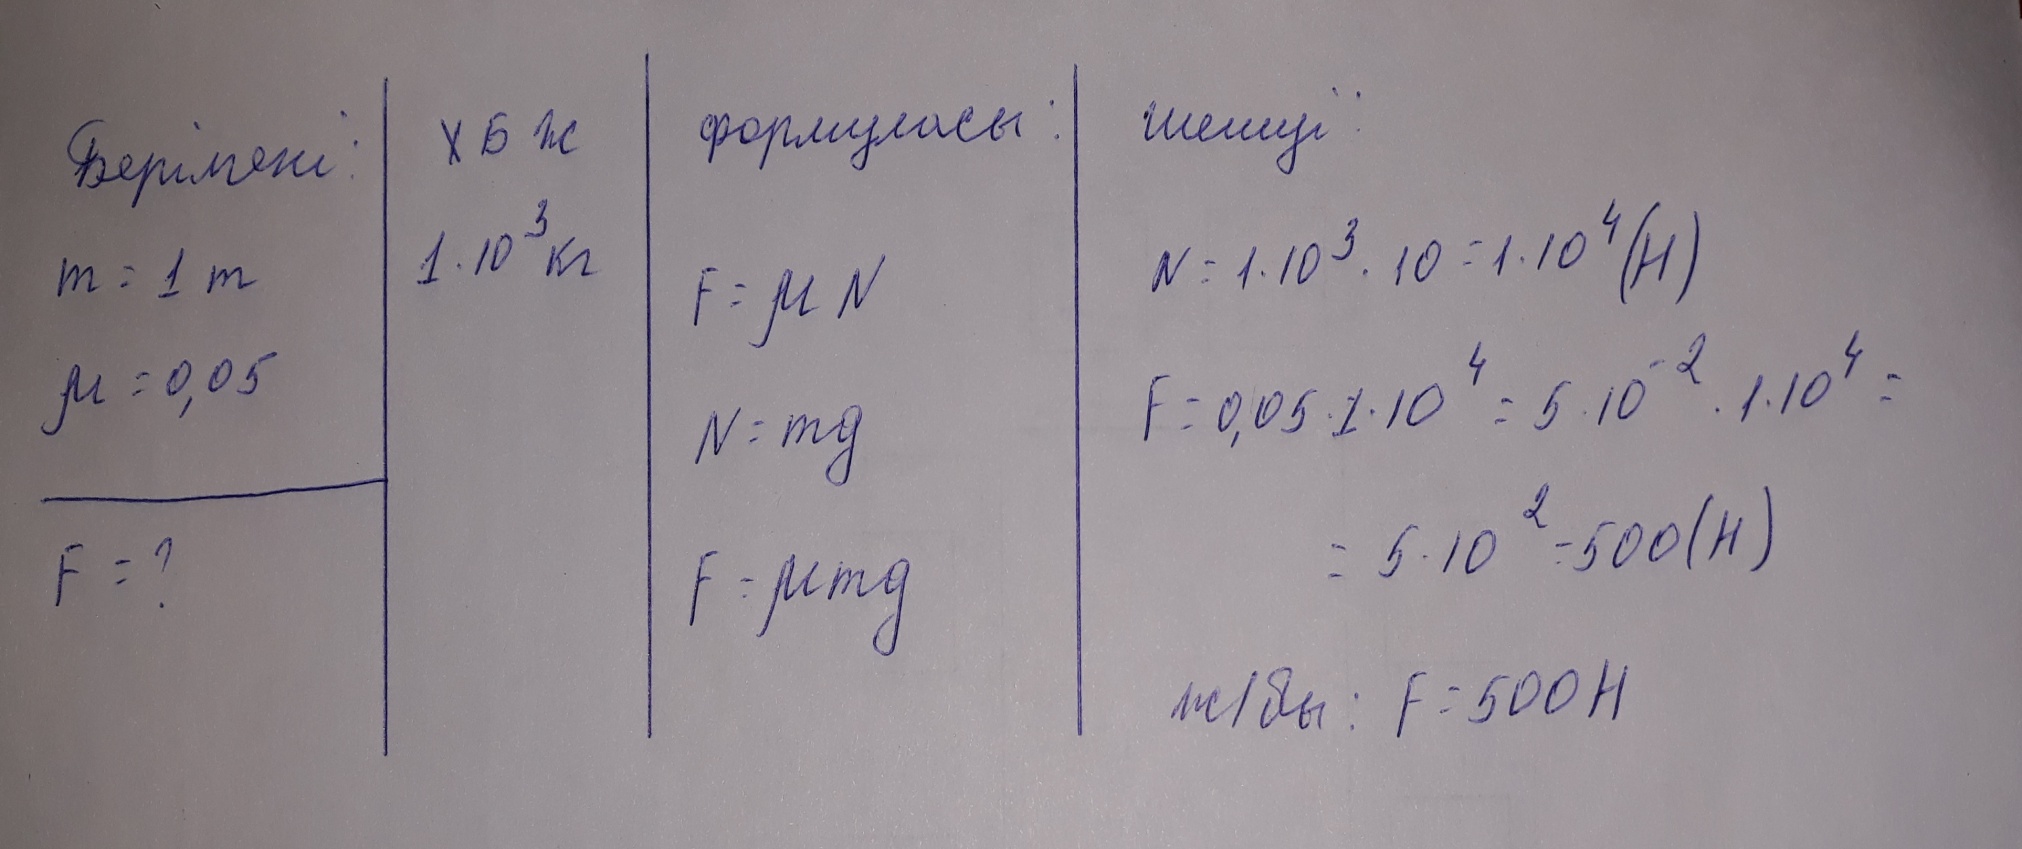 Берілгені:
m = 1 т
μ = 0,05
F = ?
ХБЖ
1·10³ кг
формуласы:
F = μN
N = mg
F = μmg
шешуі:
N = 1·10³·10 = 1·10⁴ (Н)
F = 0,05·1·10⁴ = 5·10⁻²·1·10⁴ =
= 5·10² = 500 (Н)
ж/бы: F = 500 Н